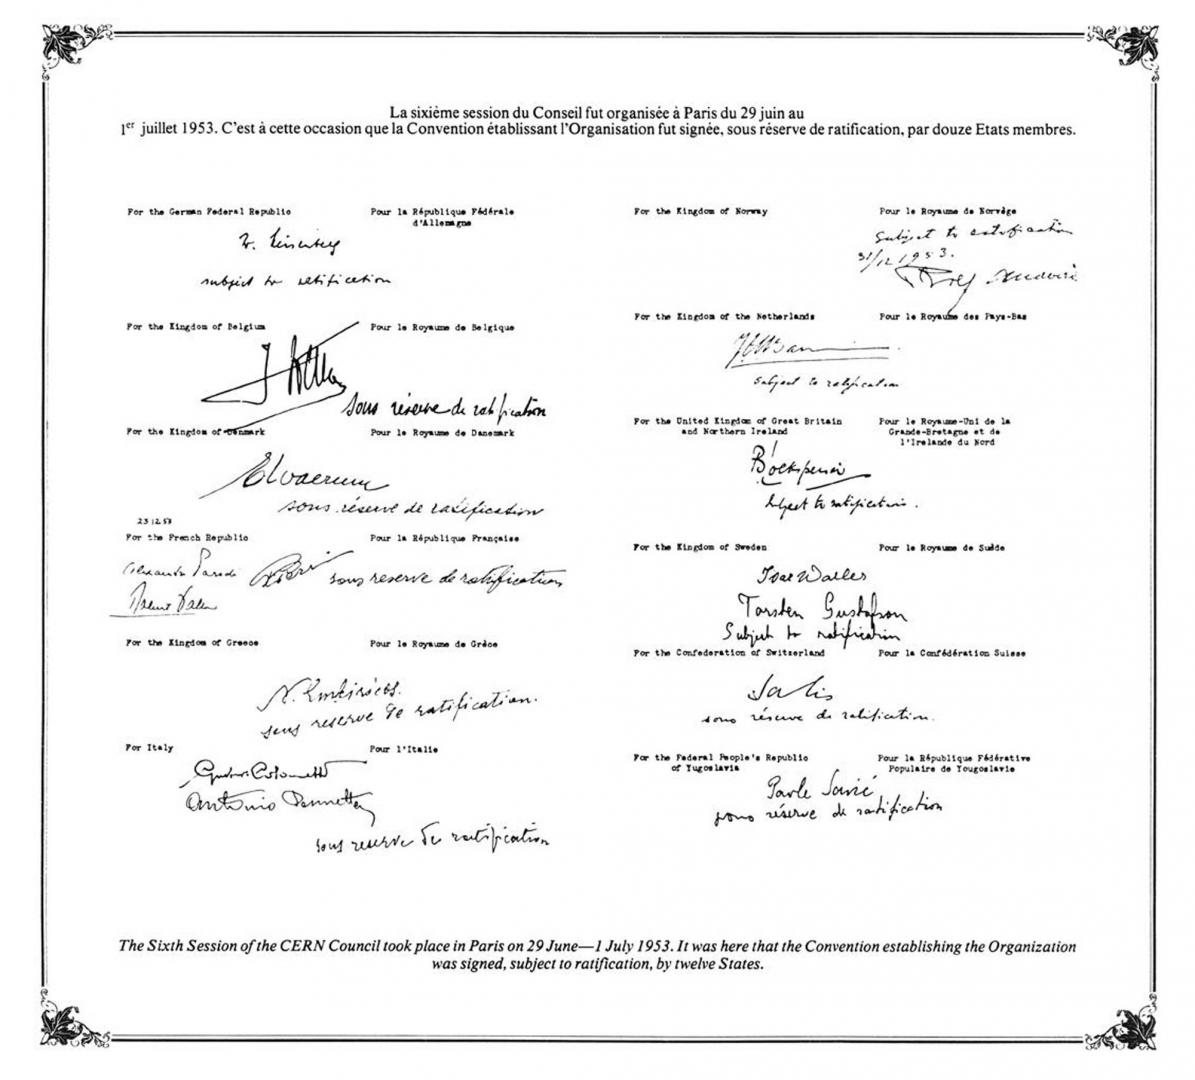 La sixième session du Conseil fut organisée à Paris du 29 juin au
1er juillet 1953. C'est à cette occasion que la Convention établissant l'Organisation fut signée, sous réserve de ratification, par douze Etats membres.
For the German Federal Republic
Pour la République Fédérale
d'Allemagne
subject to ratification
For the Kingdom of Belgium
Pour le Royaume de Belgique
sous réserve de ratification
For the Kingdom of Denmark
Pour le Royaume de Danemark
sous réserve de ratification
23 12 53
For the French Republic
Pour la République Française
sous reserve de ratification
For the Kingdom of Greece
Pour le Royaume de Grèce
sous reserve de ratification.
For Italy
Pour l'Italie
Antonio Pennetta
sous reserve de ratification
For the Kingdom of Norway
Pour le Royaume de Norvège
Subject to ratification
31/12 1953.
For the Kingdom of the Netherlands
Pour le Royaume des Pays-Bas
subject to ratification
For the United Kingdom of Great Britain
and Northern Ireland
Pour le Royaume-Uni de la
Grande-Bretagne et de
l'Irelande du Nord
subject to ratification.
For the Kingdom of Sweden
Pour le Royaume de Suède
Ivar Waller
Torsten Gustafson
Subject to ratification
For the Confederation of Switzerland
Pour la Confédération Suisse
Salis
sous réserve de ratification.
For the Federal People's Republic
of Yugoslavia
Pour la République Fédérative
Populaire de Yougoslavie
Pavle Savić
sous réserve de ratification
The Sixth Session of the CERN Council took place in Paris on 29 June—1 July 1953. It was here that the Convention establishing the Organization
was signed, subject to ratification, by twelve States.